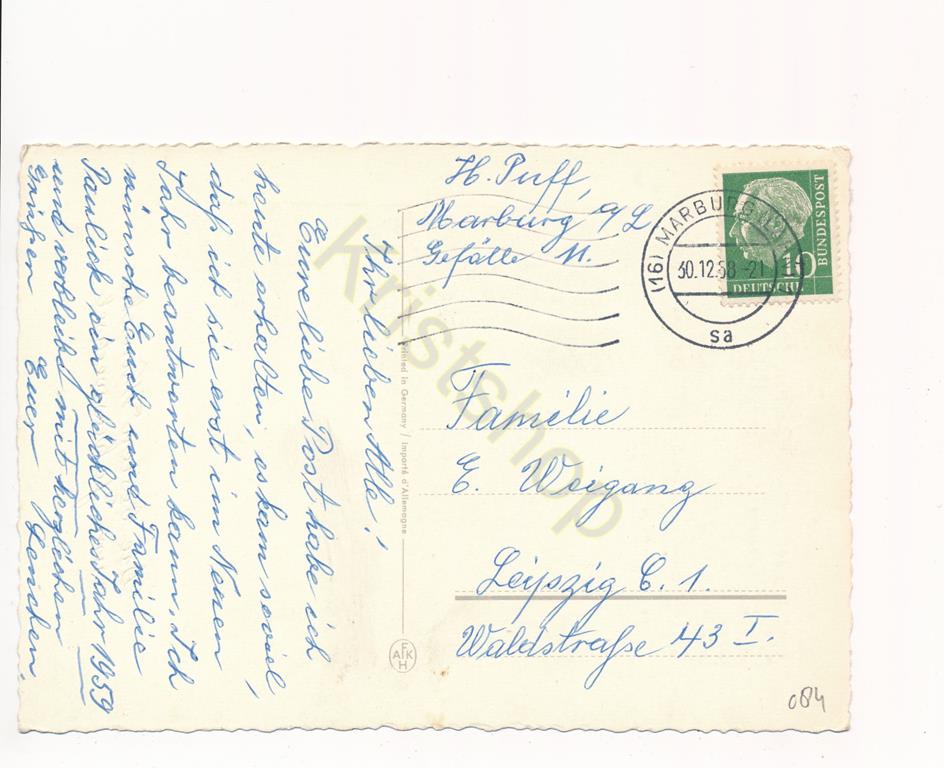 Ihr lieben Alle!
Eure liebe Post habe ich
heute erhalten, es kam soviel,
daß ich sie erst im Neuen
Jahr beantworten kann. Ich
wünsche Euch und Familie
Paulick ein glückliches Jahr 1959
und verbleibe mit herzlichen
Grüßen Euer Lenchen.
H. Puff,
Marburg a/L
Gefälle 11.
(16) MARBURG
30.12.58-21
sa
10
DEUTSCHE
BUNDESPOST
Familie
E. Weigang
Leipzig C. 1.
Waldstraße 43 I.
Printed in Germany / Importé d'Allemagne
AFKH
084
Kristshop